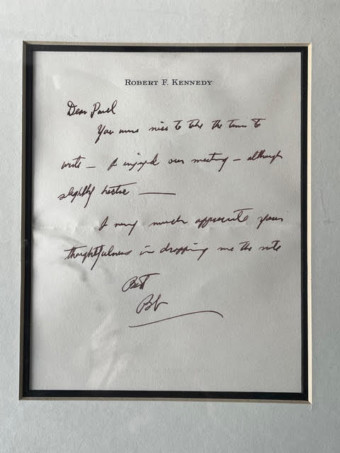 ROBERT F. KENNEDY
Dear Paul
You were nice to take the time to
write – I enjoyed our meeting – although
slightly hectic —
I very much appreciate your
thoughtfulness in dropping me the note
Best
Bob